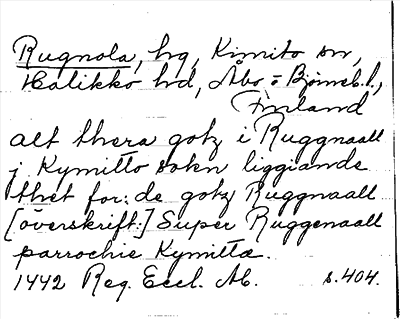 Rugnola, hg, Kimito sn,
Halikko hd, Åbo o Björneb. l.,
Finland
alt thera gotz i Ruggnaall
j Kymitto sokn liggiande
thet for: de gotz Ruggnaall
[överskrift:] Super Ruggenaall
parrochie Kymittæ.
1442 Reg. Eccl. Ab. s. 404.